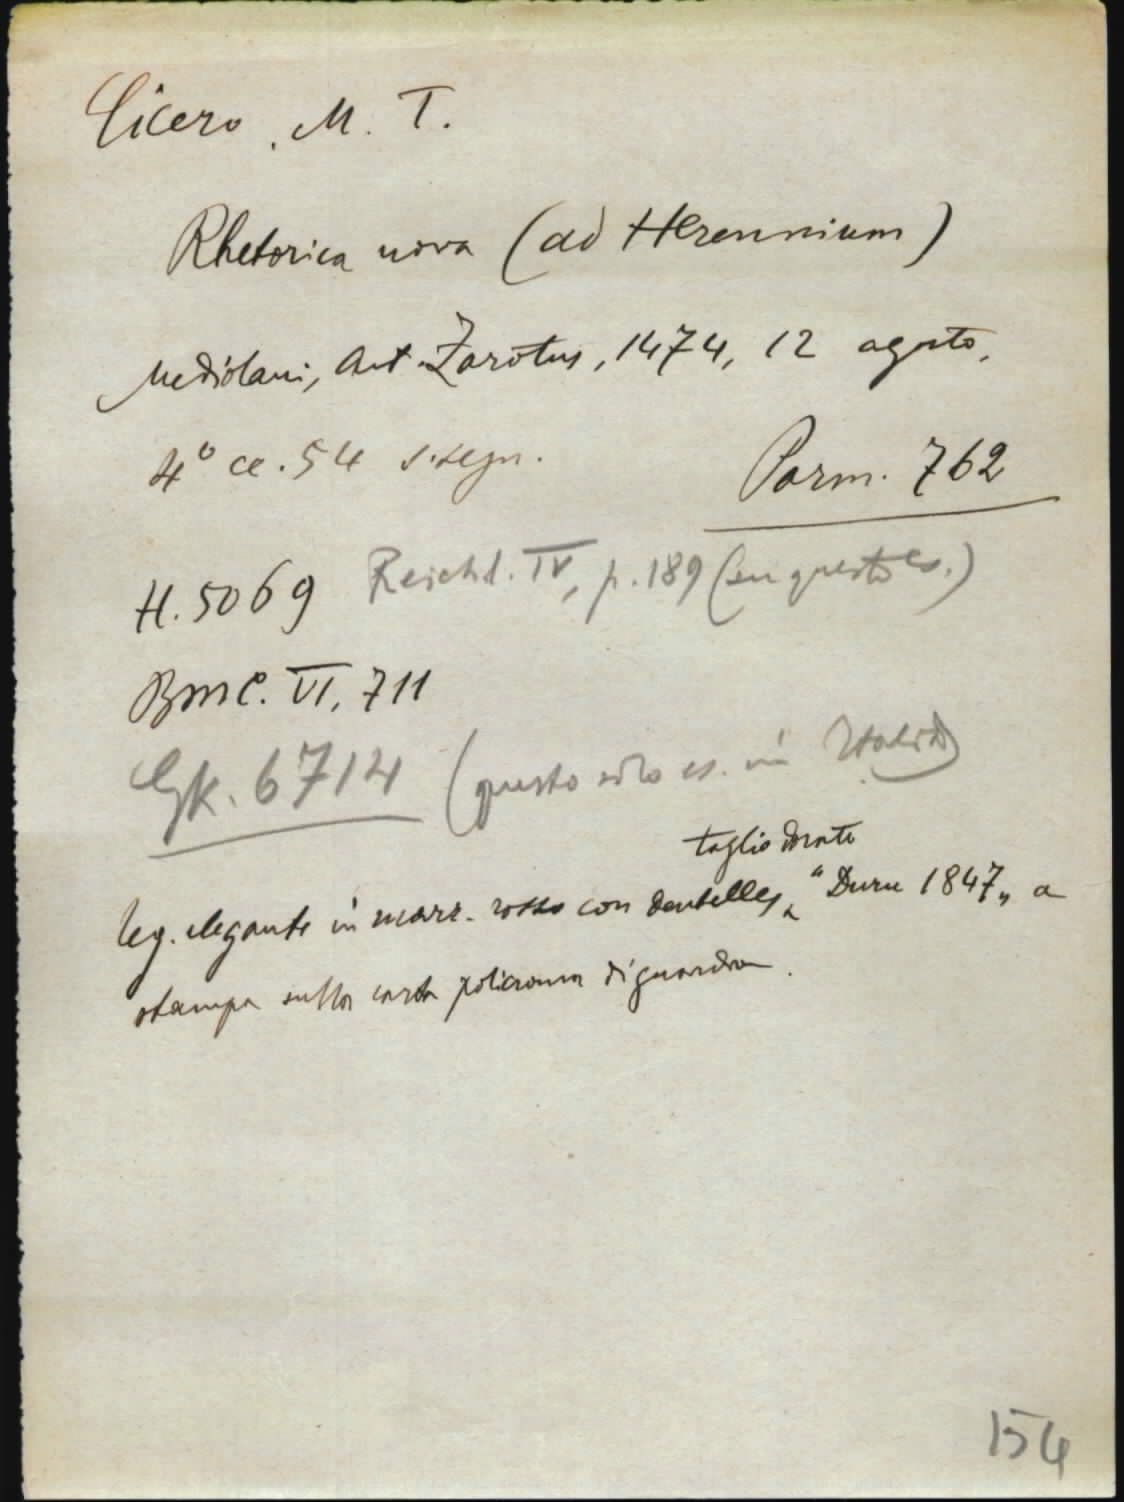 Cicero, M. T.
Rhetorica nova (ad Herennium)
Mediolani, Ant. Zarotus, 1474, 12 agosto,
4° cc. 54 s. segn.
Parm. 762
H. 5069 Reichl. IV, p. 189 (su questo es.)
BMC. VI, 711
Gk. 6714 (questo solo es. in Italia)
taglio dorato
leg. elegante in marr. rosso con dentelles, "Duru 1847„ a
stampa sulla carta policroma di guardia.
154